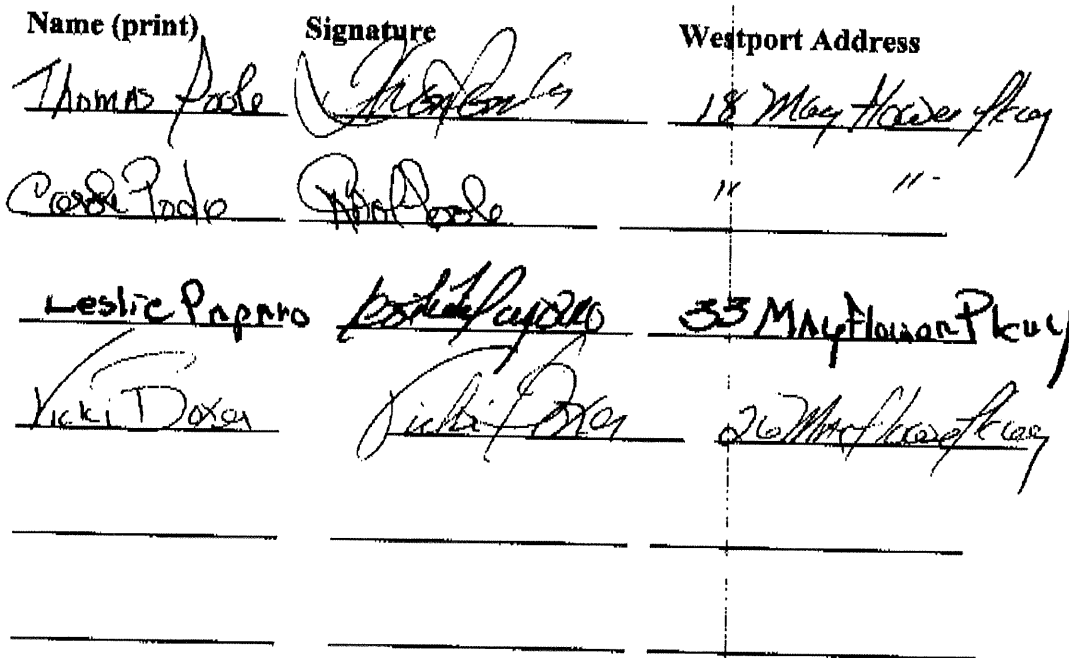 Name (print) Signature Westport Address
Thomas Poole 18 Mayflower Pkwy
Poole " "
Leslie Paparo Leslie Paparo 33 Mayflower Pkwy
Vicki Vicki 26 Mayflower Pkwy